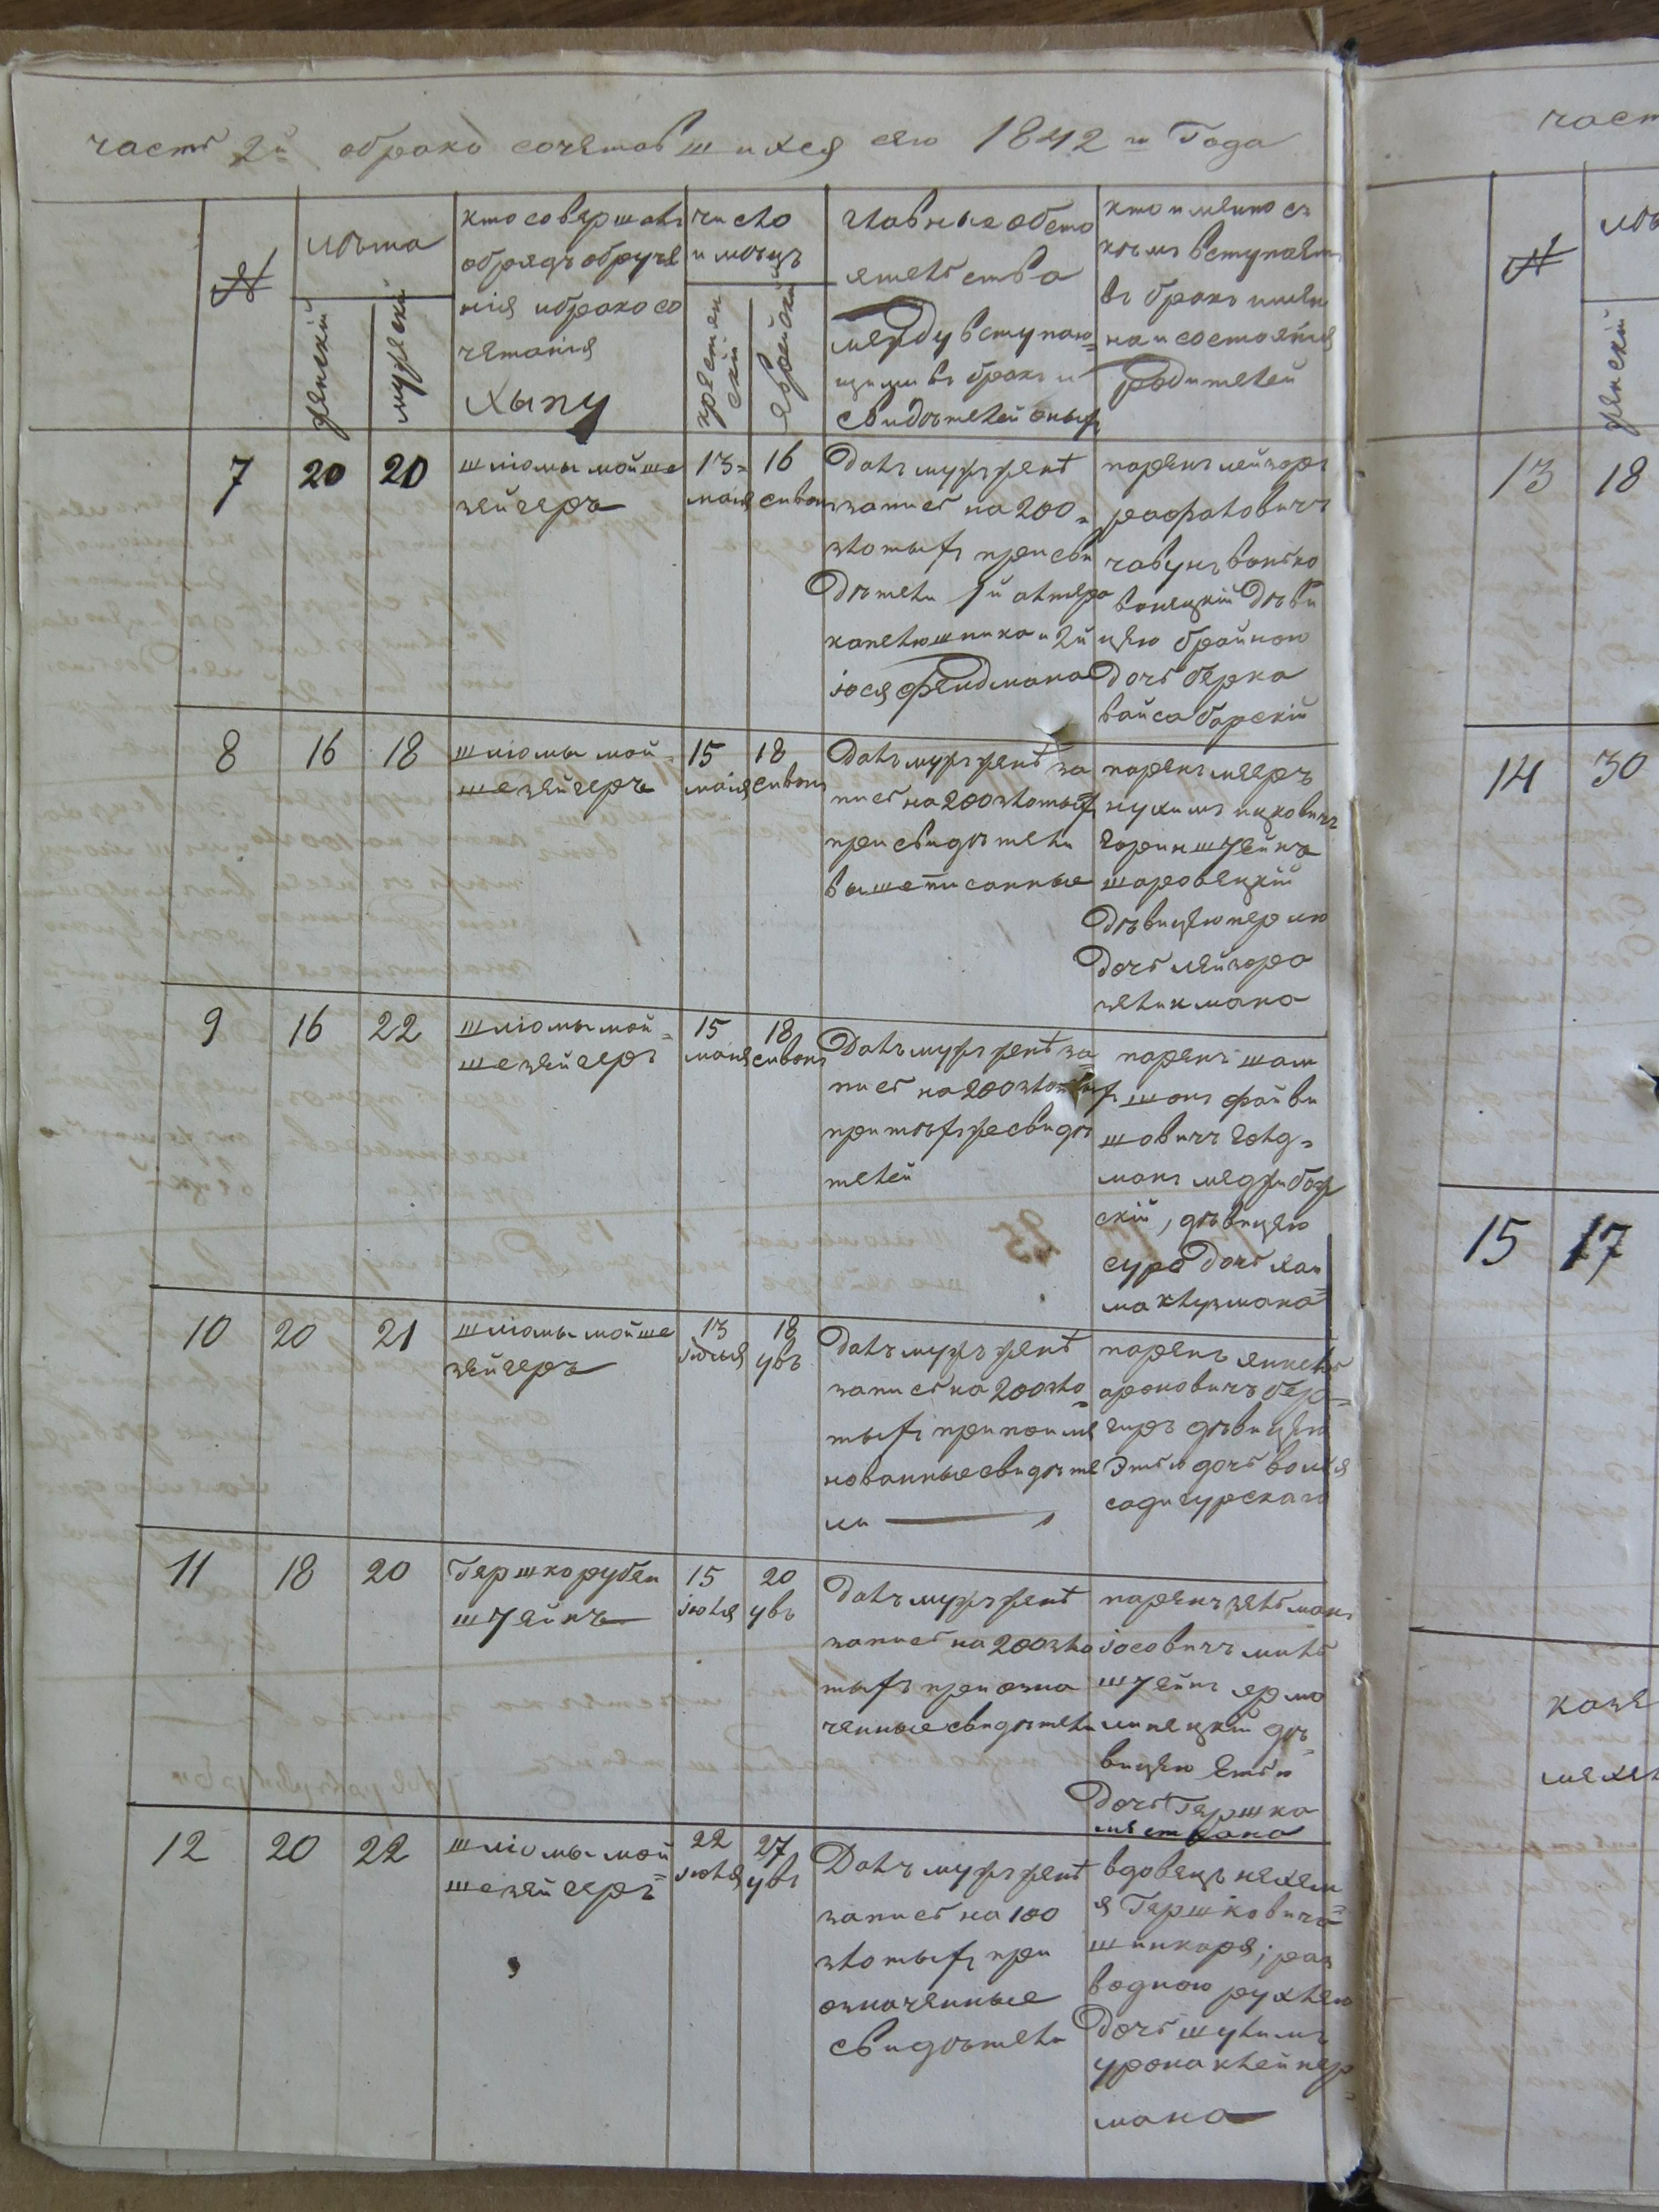 часть 2й обрако сочетавшихся сего 1842 го Года
№
лѣта
женскій
мужескій
кто совершалъ
обрядъ обруче
нія и брако со
четанія
хыпу
число
и мѣцъ
христиан
скій
еврейскій
главные обсто
ятельства
между вступаю=
щими въ бракъ и
свидѣтелей оныхъ
кто имянно съ
кѣмъ вступаетъ
въ бракъ имян
на и состоянія
родителей
7
20
20
шліомы мойше
зейгеръ
13=
мая
16
сиванъ
Далъ мужъ женѣ
запись на 200=
злотыхъ при сви
дѣтели 1й алтера
капелюшника и 2й
іося фелдмана
паренъ лейзоръ
рафаловичъ
чавунъ вонько
вонецкій дѣви
цею брайною
дочь берка
вайсаборскій
8
16
18
шліомы мой=
ше зейгеръ
15
мая
18
сиванъ
Далъ мужъ женѣ за
пись на 200 злотыхъ
при свидѣтели
вышеписанные
паренъ мееръ
нухимъ ицковичъ
горинштейнъ
шаровецкій
дѣвицею перлю
дочь лейзора
зеликмана
9
16
22
шліомы мой=
ше зейгеръ
15
мая
18
сиванъ
Далъ мужъ женѣ за=
пись на 200 злотыхъ
при тѣхъ же свидѣ
телей
паренъ шам
шонъ файви
шовичъ голд=
манъ меджибож
скій, дѣвицею
сура дочь хаи
ма клузмана
10
20
21
шліомы мойше
зейгеръ
13
18
увъ
Далъ мужъ женѣ
запись на 200 зло=
тыхъ при поиме
нованные свидѣте
ли
паренъ янкель
ароновичъ бер=
гиръ дѣвицею
этью дочь
садигурскаго
11
18
20
Гершко рубен
штейнъ
15
іюля
20
увъ
Далъ мужъ женѣ
запись на 200 зло
тыхъ при озна
ченные свидѣтели
паренъ зельманъ
іосовичъ миль
штейнъ ярмо
линецкій дѣ=
вицею етью
дочь Гершка
12
20
22
шліомы мой
ше зейгеръ
22
іюля
27
увъ
Далъ мужъ женѣ
запись на 100
злотыхъ при
означенные
свидѣтели
вдовецъ нехем=
я Гершковича
шинкаря; раз
водною рухлею
дочь шулимъ
урона клейнер=
мана
част
№
лѣ
женскій
13
18
14
30
15
17